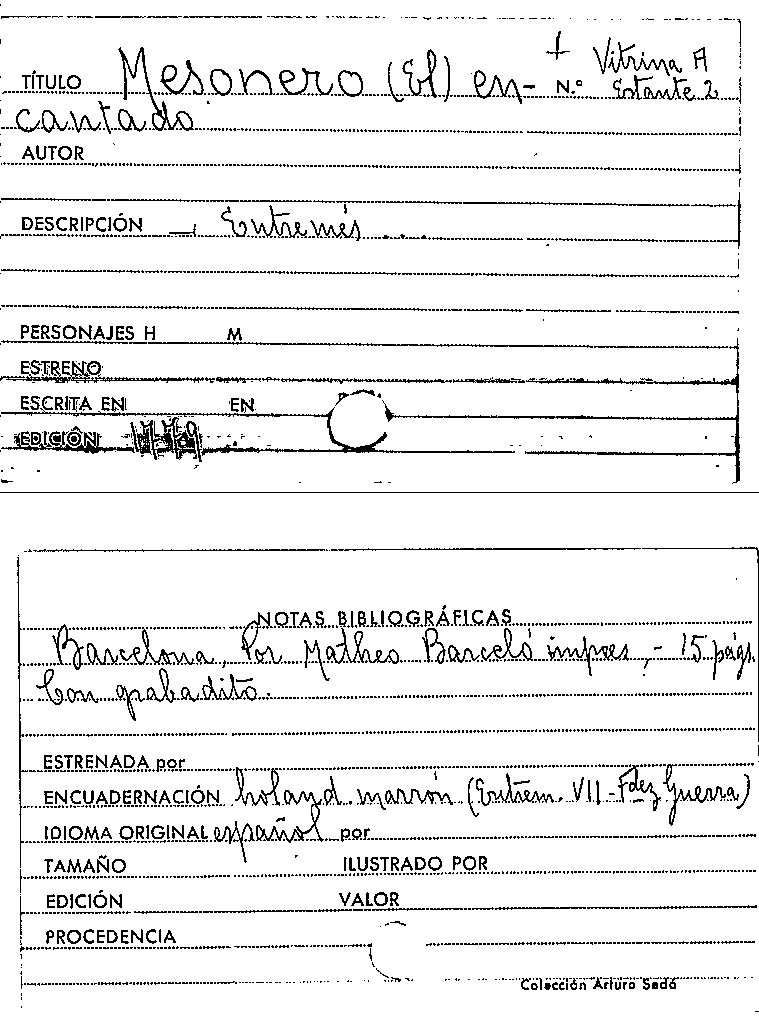 TÍTULO Mesonero (El) en- + Vitrina A
N.º Estante 2
cantado
AUTOR
DESCRIPCIÓN —, Entremés...
PERSONAJES H M
ESTRENO
ESCRITA EN EN
EDICIÓN 1779
NOTAS BIBLIOGRÁFICAS
Barcelona, Por Matheo Barceló impres,- 15 págs.
Con grabadito.
ESTRENADA por
ENCUADERNACIÓN holand. marrón (Entrem. VII-Fdez Guerra)
IDIOMA ORIGINAL español por
TAMAÑO ILUSTRADO POR
EDICIÓN VALOR
PROCEDENCIA
Colección Arturo Sedó